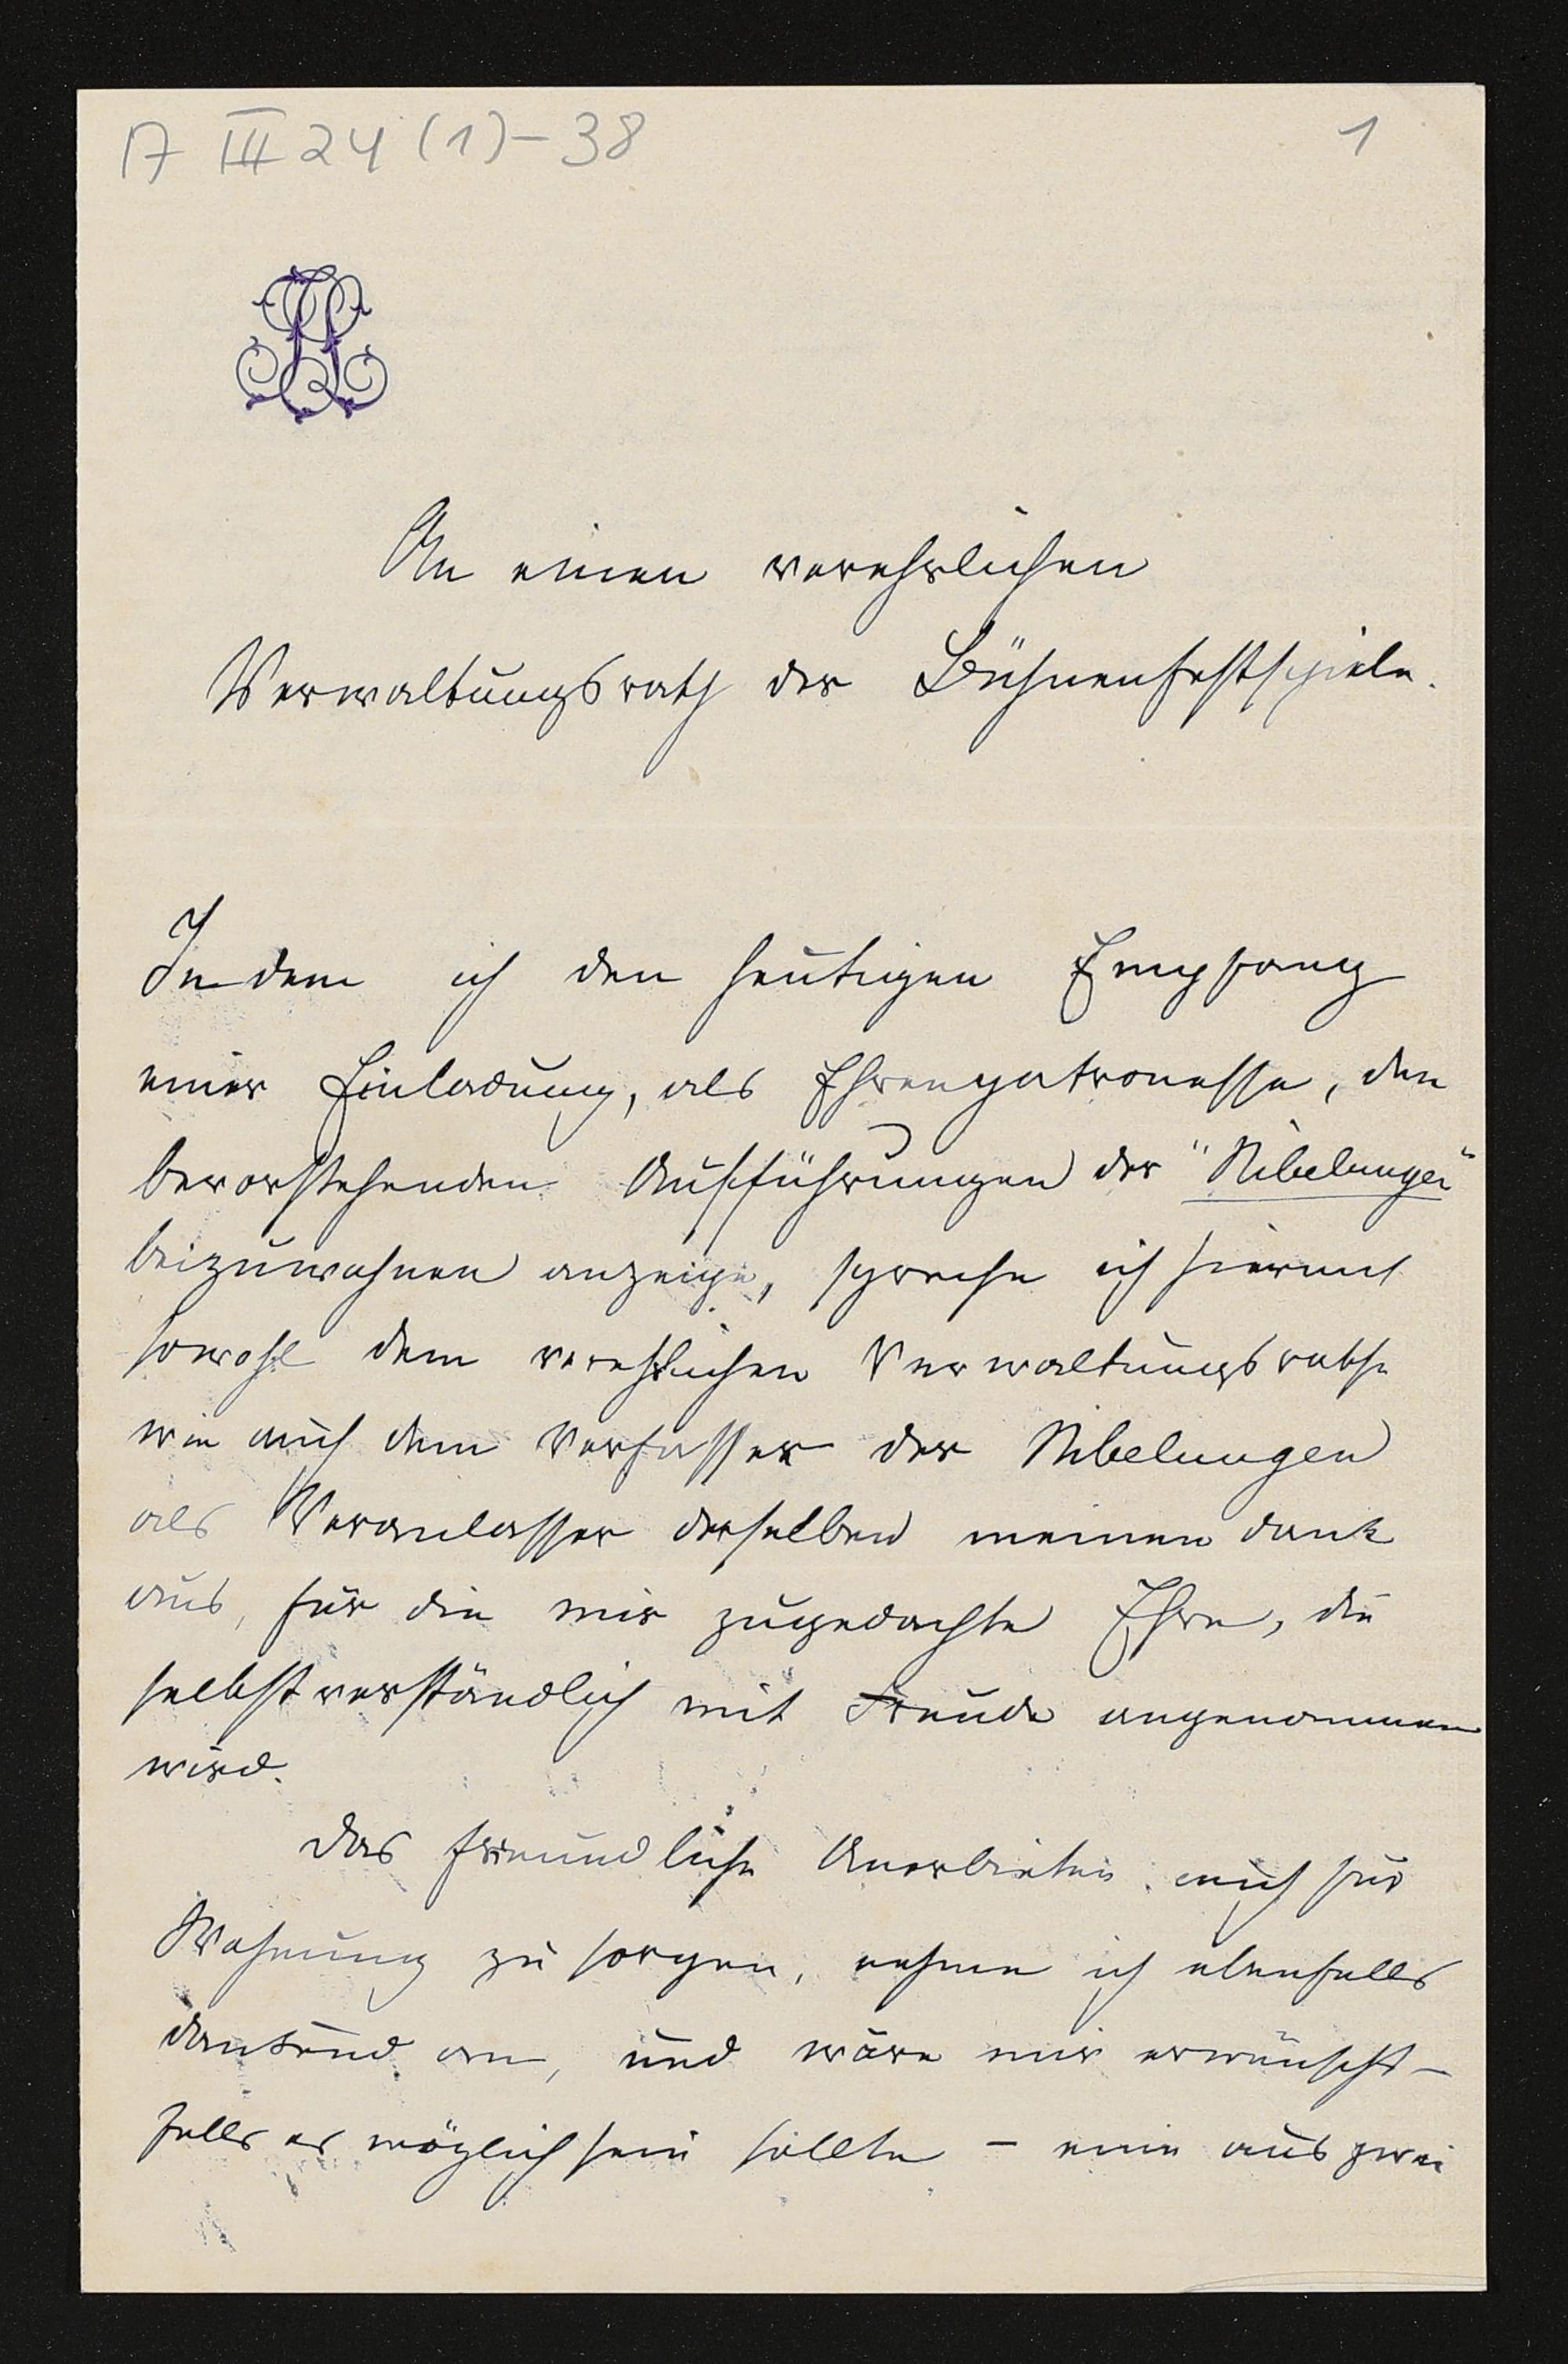 A III 24 (1)-38
1
An einen verehrlichen
Verwaltungsrath der Bühnenfestspiele.
In dem ich den heutigen Empfang
einer Einladung, als Ehrenpatronesse, den
bevorstehenden Aufführungen der "Nibelungen"
beizuwohnen anzeige, spreche ich hiermit
sowohl dem verehrlichen Verwaltungsrathe
wie auch dem Verfasser der Nibelungen
als Veranlasser derselben meinen Dank
aus, für die mir zugedachte Ehre, die
selbstverständlich mit Freude angenommen
wird.
Das freundliche Anerbieten mich für
Wohnung zu sorgen, nehme ich ebenfalls
dankend an, und wäre mir erwünscht –
falls es möglich sein sollte – eine aus zwei